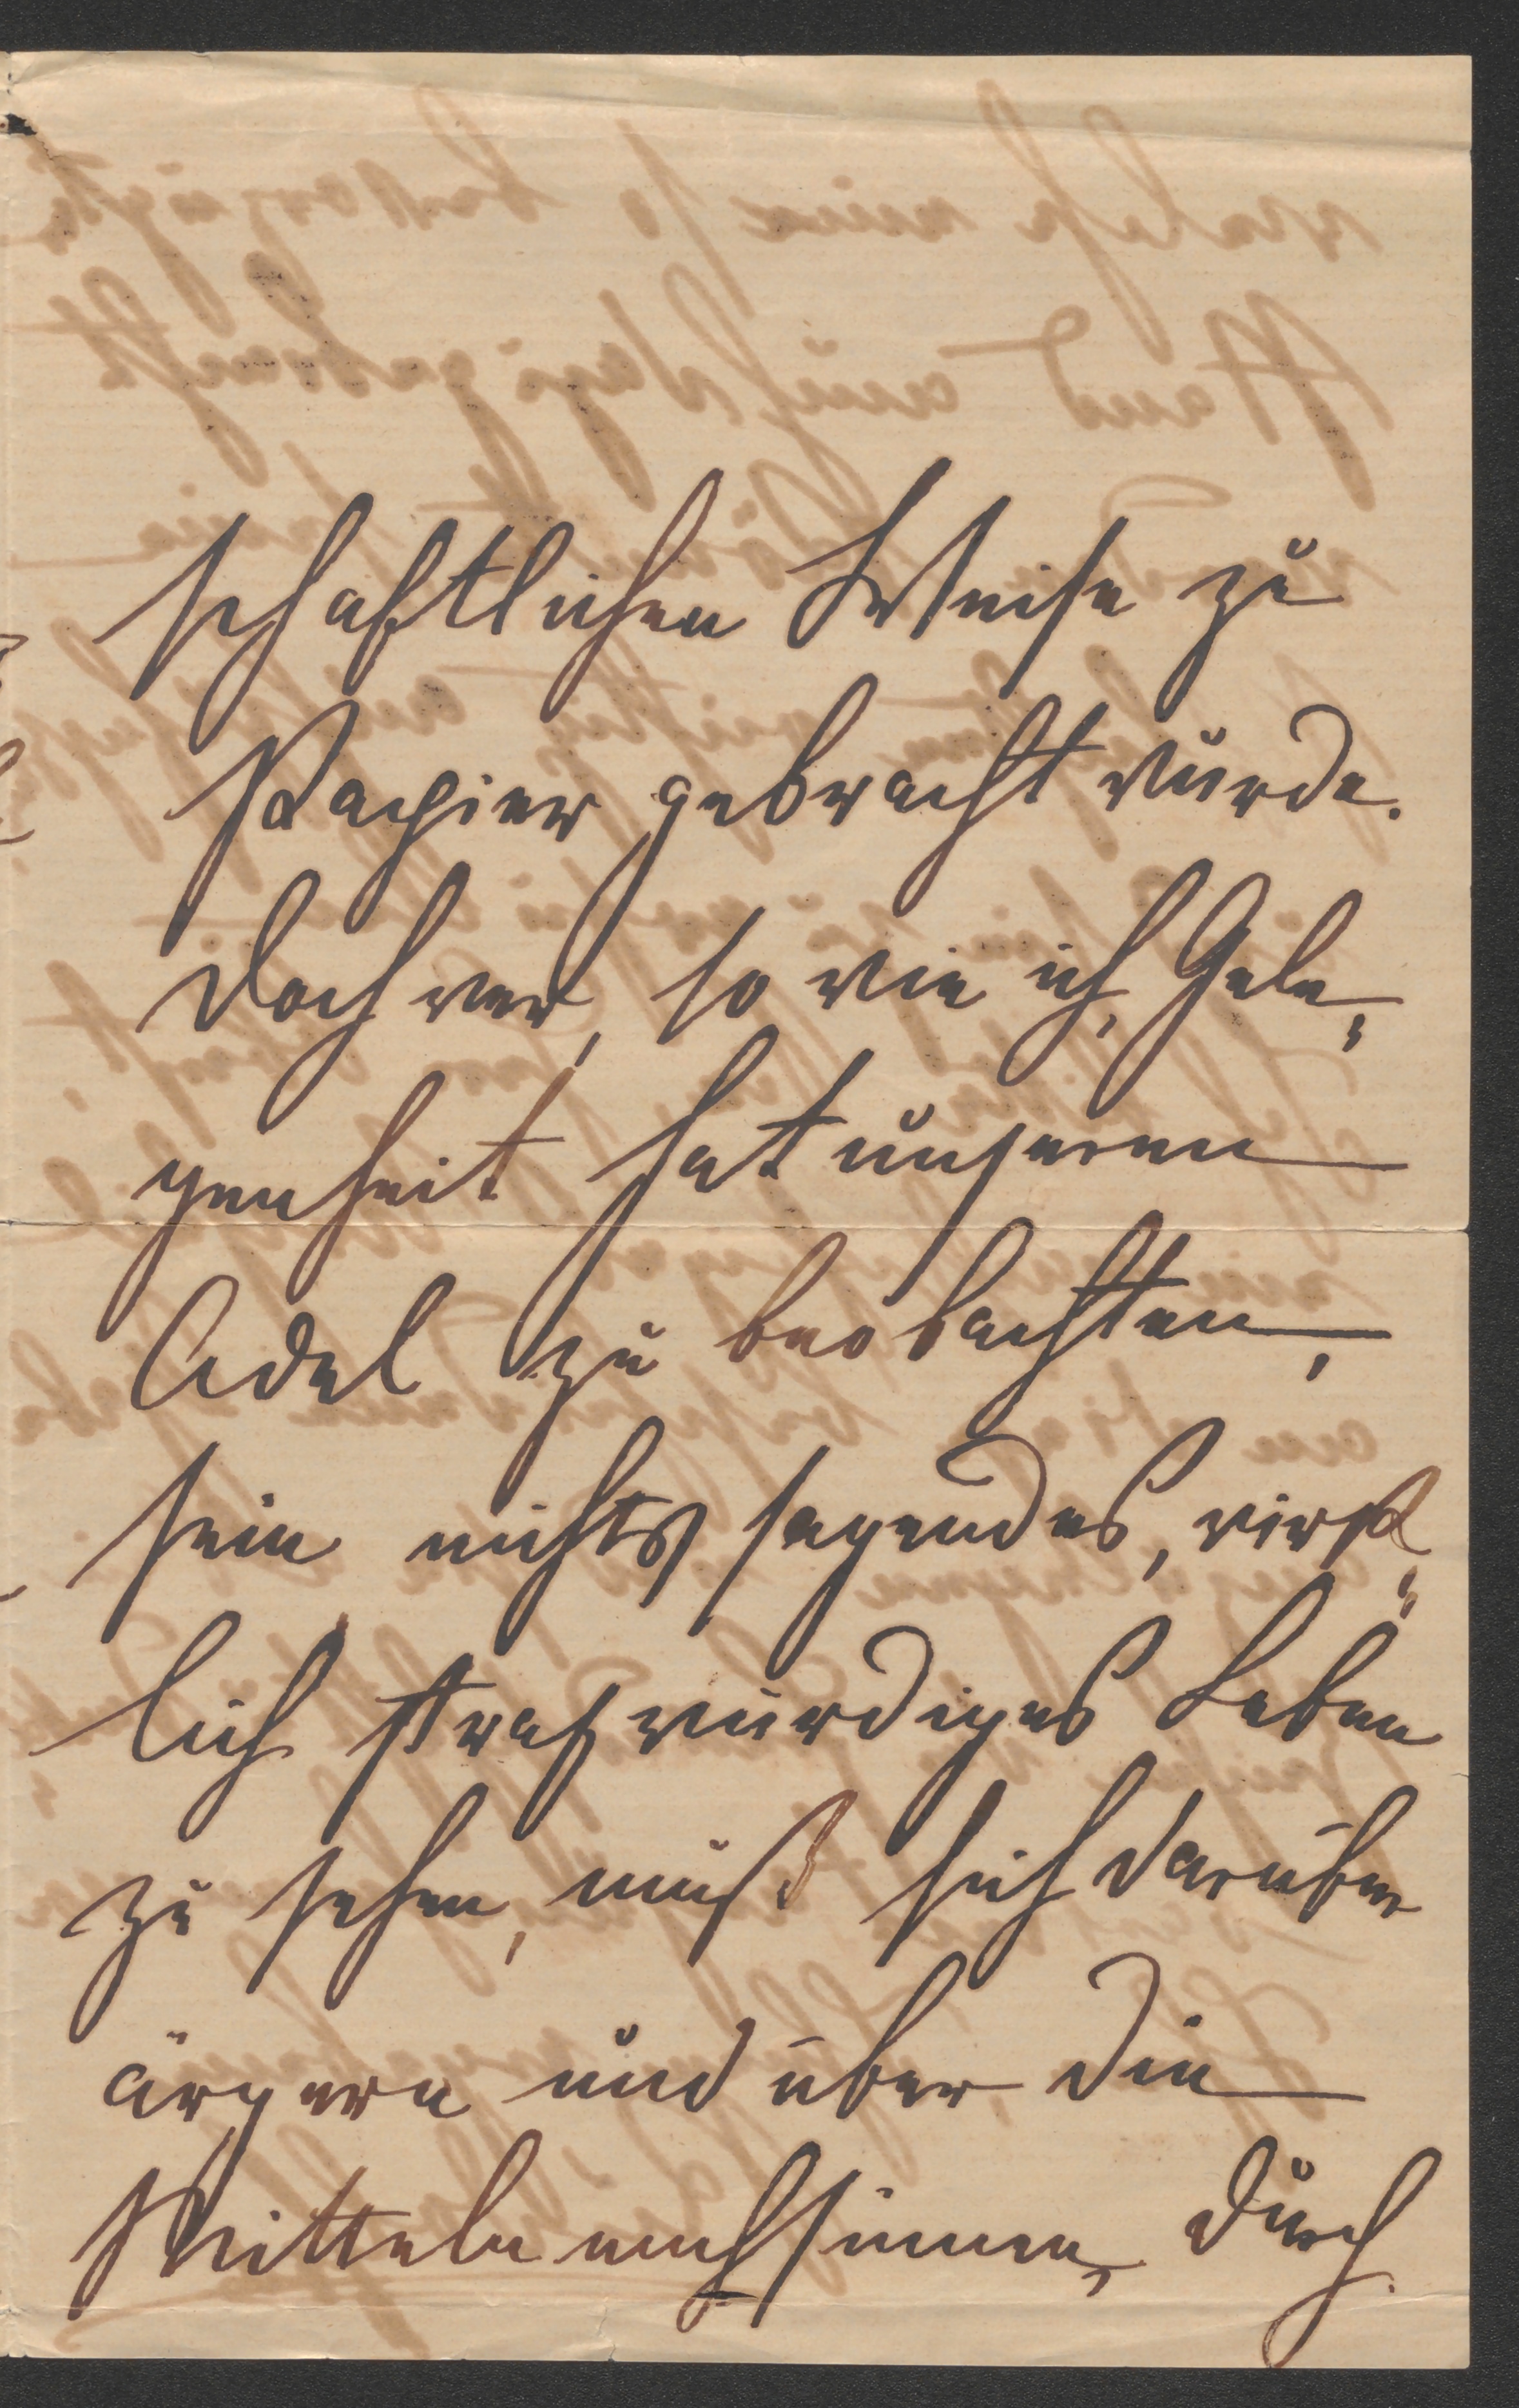 schaftlichen Weise zu
Papier gebracht wurde.
Doch wer, so wie ich, Gele¸
genheit hat unseren
Adel zu beobachten,
sein nichts sagendes, wirk¸
lich strafwürdiges Leben
zu sehen, muß sich darüber
ärgern und über die
Mitteln nachsinnen, durch